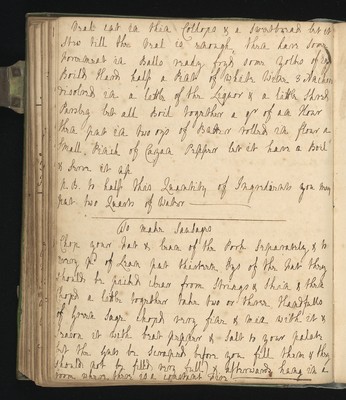 Veal cut in thin Collops & a Sweetbread let it
Stew till the Veal is enough, then have some
forcemeat in Balls ready fryd some Yolks of Eggs
Boild Hard half a Pint of White Wine 3 Anchov
resolved in a little of the Liquor & a little Shred
Parsley let all Boil together a qr of an Hour
then put in two ozs of Butter rolled in flour a
Small Pinch of Cayan Pepper let it have a Boil
& Serve it up
N.B. to half this Quantity of Ingredients you may
put two Quarts of Water
To make Sausages
Chop your Fat & Lean of the Pork Separately, & to
every Pd of Lean put thirteen Ozs of the Fat they
should be picked clean from Strings & Skin & then
chopd a little together take two or three Handfulls
of Green Sage chopd very fine & mix with it &
season it with beat pepper & Salt to your palate
let the Guts be Scraped before you fill them & they
should not be filld very full & afterwards hang in a
room where there is a constant fire